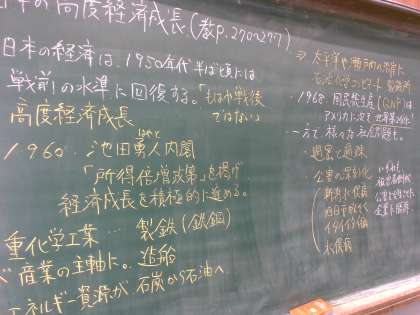 の高度経済成長(教p.270〜277)
日本の経済は、1950年代半ば頃には
戦前の水準に回復する。「もはや戦後
ではない」
高度経済成長
はやと
1960・池田勇人内閣
「所得倍増政策」を掲げ
経済成長を積極的に進める。
重化学工業… 製鉄(鉄鋼)
産業の主軸に。造船
エネルギー資源が石炭から石油へ
⇒太平洋や瀬戸内の沿岸に
石油化学コンビナート 製鉄所
・1968. 国民総生産(GNP)が
アメリカに次ぎ世界第2位に
一方で様々な社会問題も。
・過密と過疎
・公害の深刻化
新潟水俣病
四日市ぜんそく
イタイイタイ病
水俣病